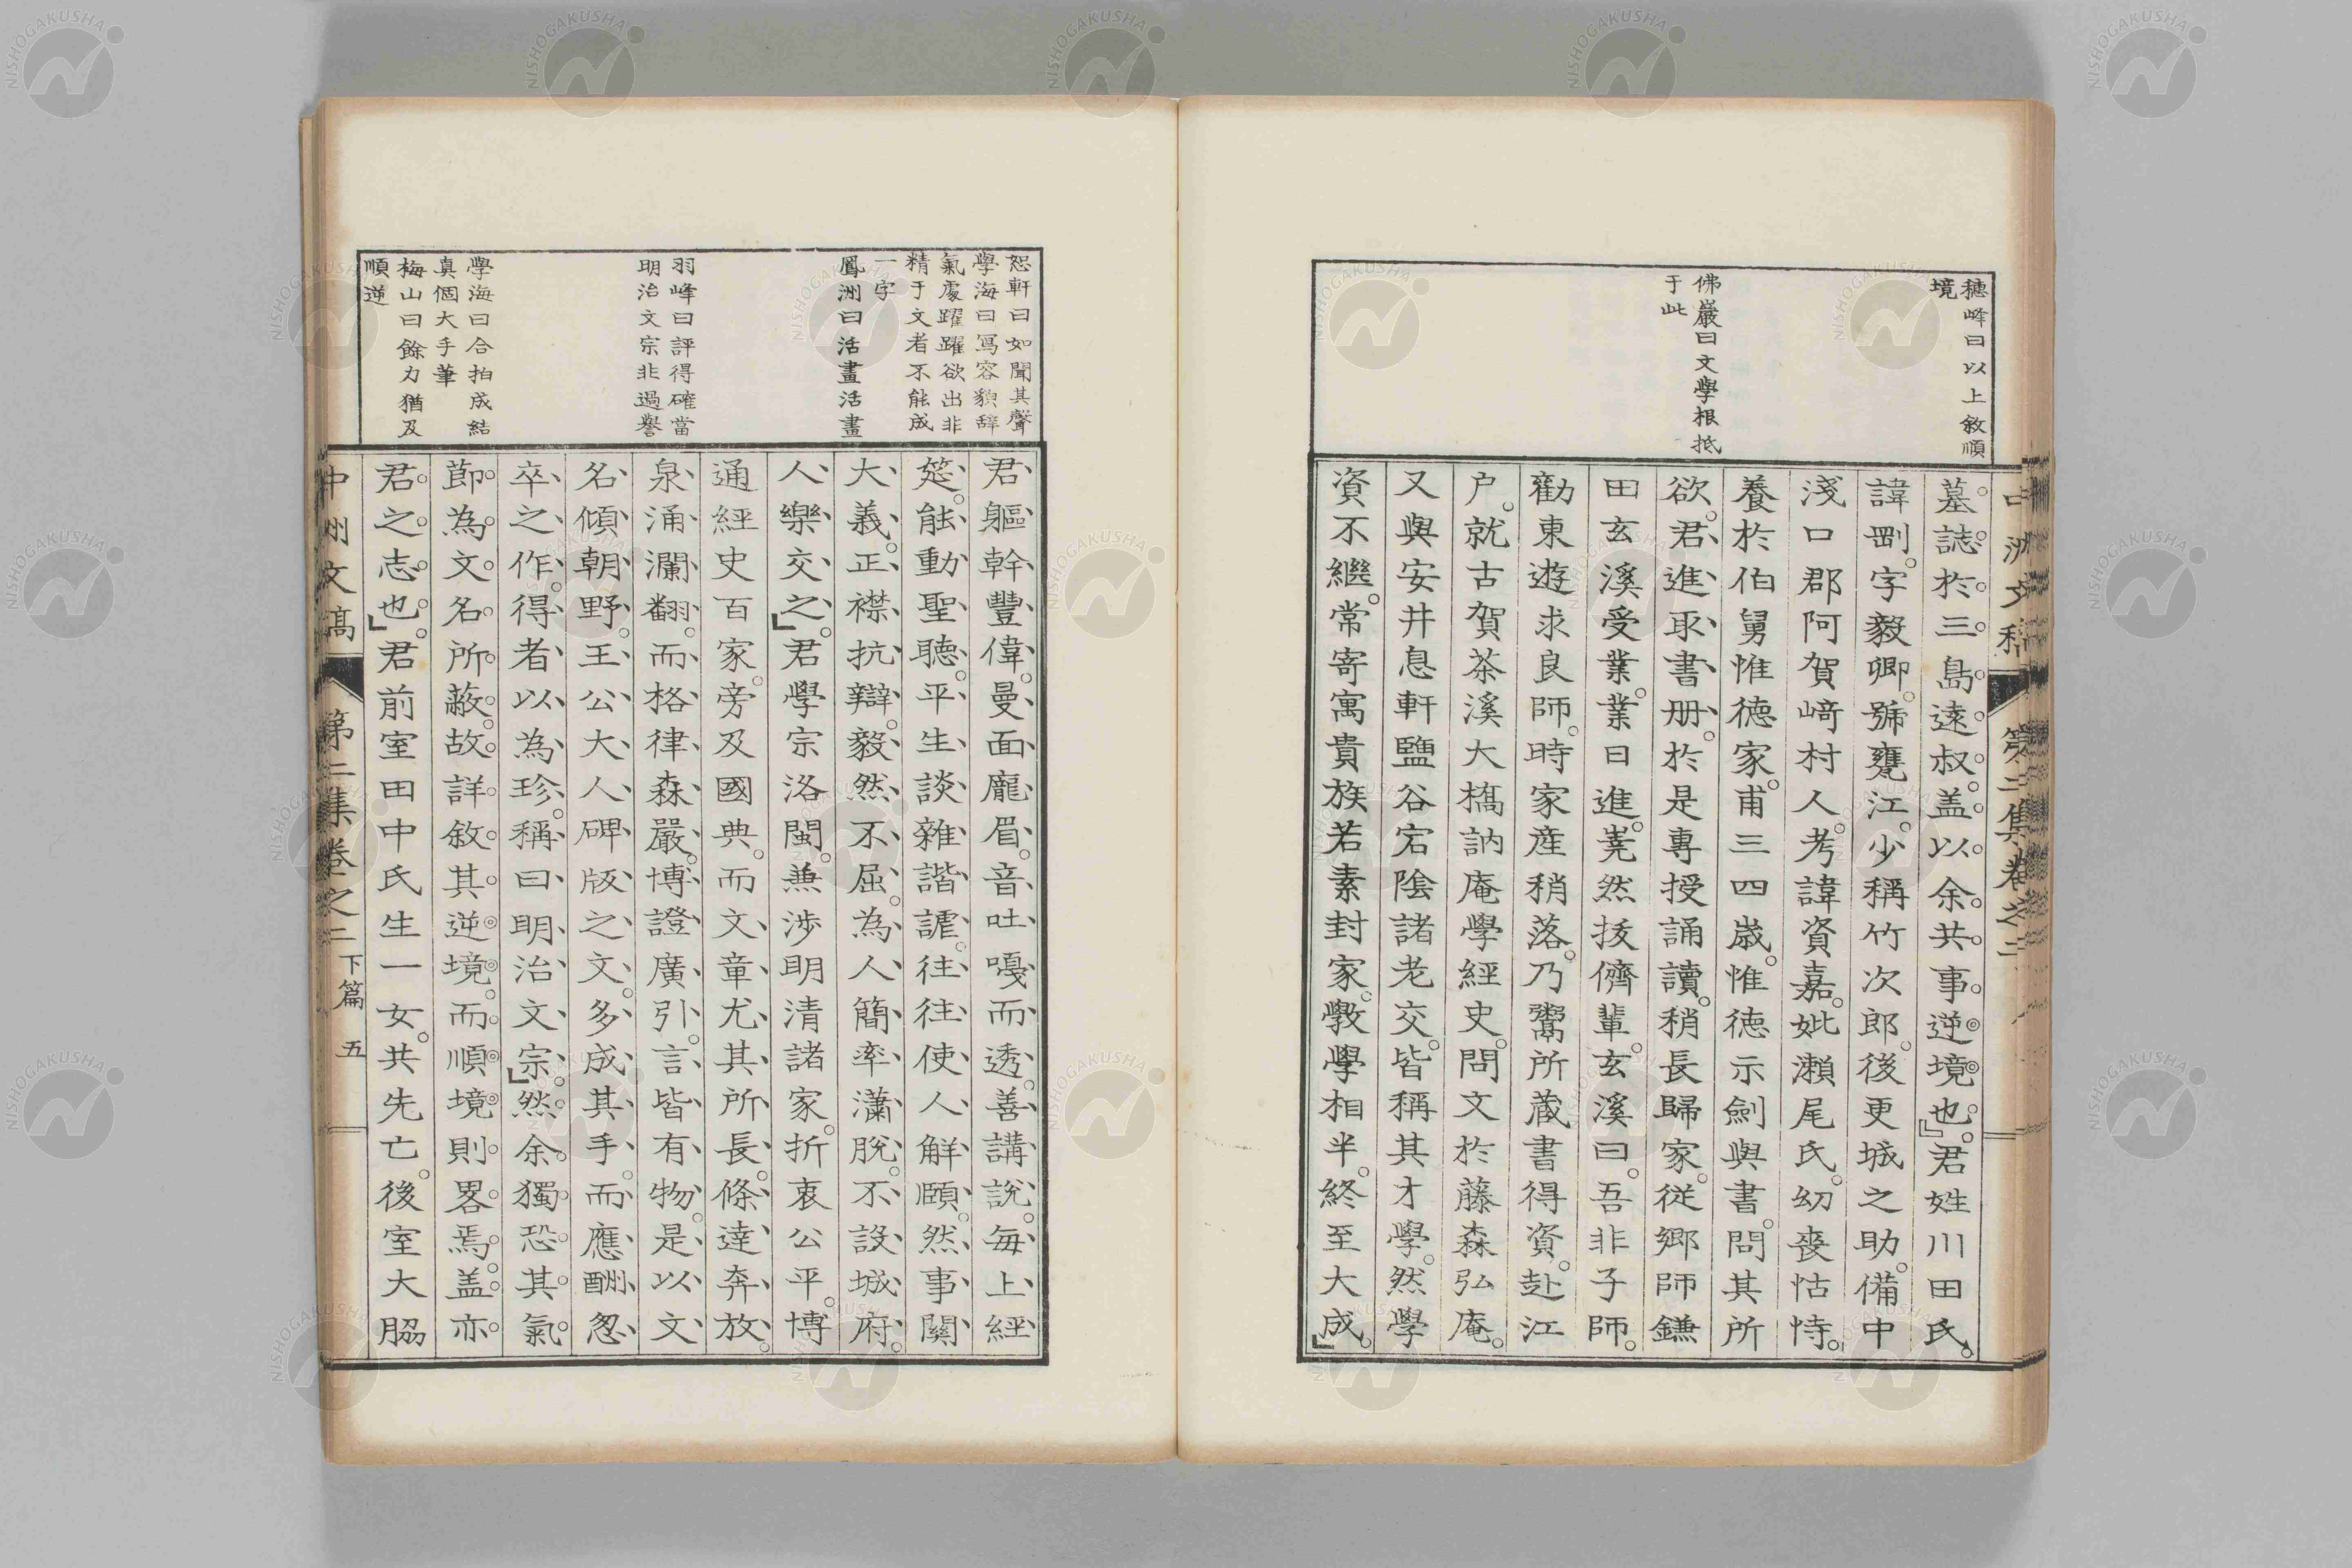 穗峰曰以上敘順
境
佛巖曰文學根抵
于此
墓誌於三島遠叔。盖以余共事逆境也。』君姓川田氏。
諱剛。字毅卿。號甕江。少稱竹次郎。後更城之助。備中
淺口郡阿賀﨑村人。考諱資嘉。妣瀨尾氏。幼喪怙恃。
養於伯舅惟德家。甫三四歲。惟德示劍與書。問其所
欲。君進取書册。於是專授誦讀。稍長歸家。從鄉師鎌
田玄溪受業。業日進。嶤然拔儕輩。玄溪曰。吾非子師。
勸東遊求良師。時家產稍落。乃鬻所藏書得資。赴江
户。就古賀茶溪大橋訥庵學經史。問文於藤森弘庵。
又與安井息軒鹽谷宕陰諸老交。皆稱其才學。然學
資不繼。常寄寓貴族若素封家。敎學相半。終至大成。』
中洲文稿 第二集卷之二
恕軒曰如聞其聲
學海曰寫容貌辞
氣處躍躍欲出非
精于文者不能成
一字
鳳洲曰活畫活畫
羽峰曰評得確當
明治文宗非過譽
學海曰合拍成結
真個大手筆
梅山曰餘力猶及
順逆
君軀幹豐偉。曼面龐眉。音吐嘎而透。善講說。每上經
筵。能動聖聽。平生談雜諧謔。往往使人解頤。然事關
大義。正襟抗辯。毅然不屈。為人簡率瀟脫。不設城府。
人樂交之。』君學宗洛閩。兼涉明清諸家。折衷公平。博
通經史百家。旁及國典。而文章尤其所長。條達奔放。
泉涌瀾翻。而格律森嚴。博證廣引。言皆有物。是以文
名傾朝野。王公大人碑版之文。多成其手。而應酬怱
卒之作。得者以為珍。稱曰明治文宗。』然余獨恐其氣
節為文名所蔽。故詳敘其逆境。而順境則畧焉。盖亦
君之志也。』君前室田中氏生一女。共先亡。後室大脇
中洲文稿 第二集卷之二 下篇 五
NISHOGAKUSHA